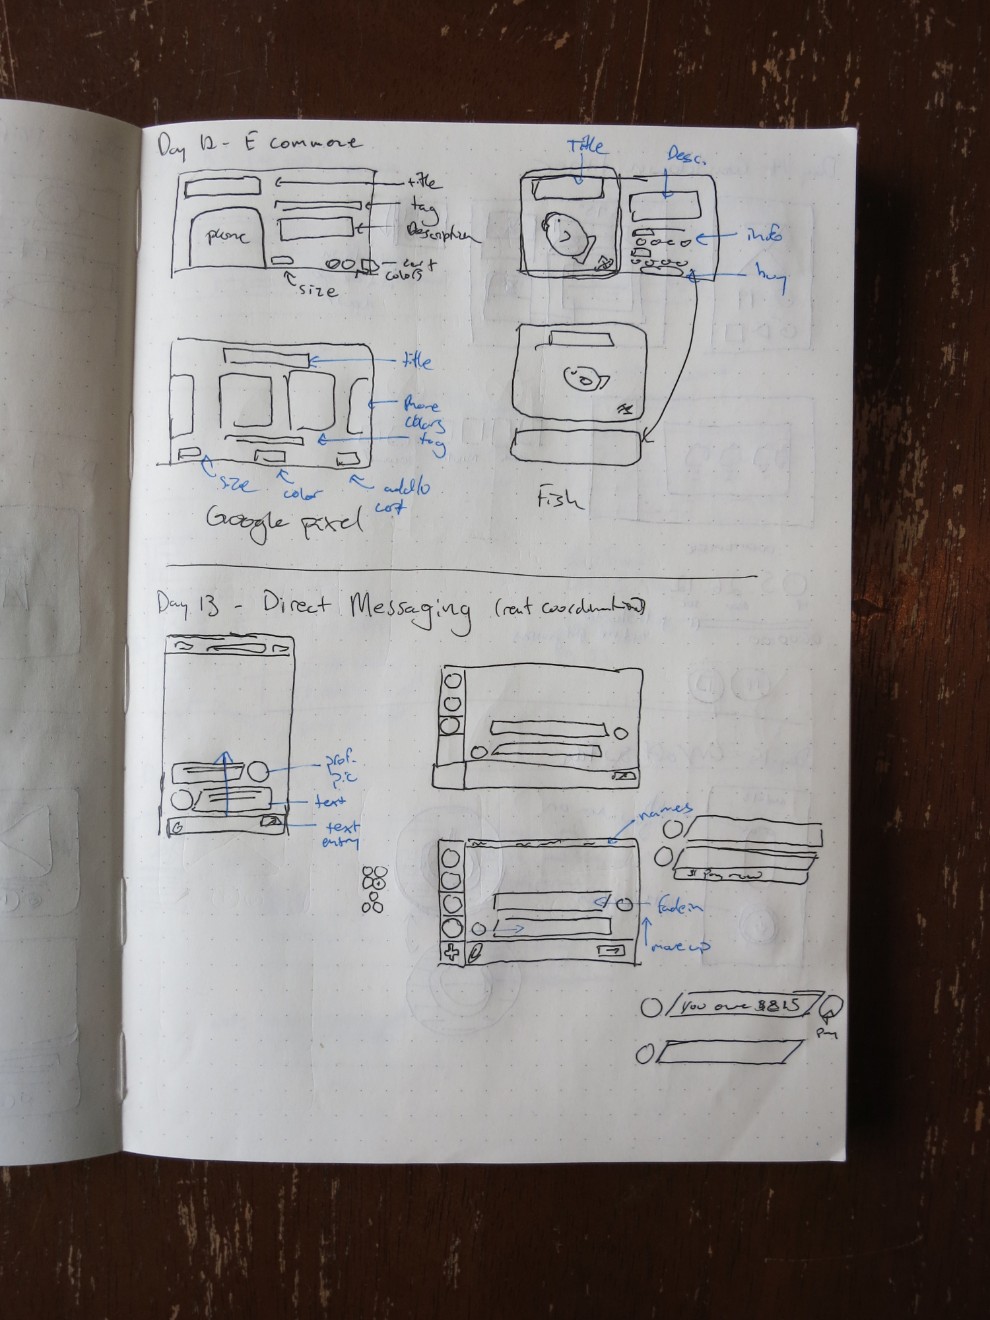 Day 12 - E commore
title
tag
Description
phone
cart
colors
size
Title
Desc.
info
buy
title
Phone
colors
tag
size
color
add to
cart
Google pixel
Fish
Day 13 - Direct Messaging (rent coordination)
prof.
pic
text
text
entry
names
$ Pay now
fade in
move up
You owe $825
pay